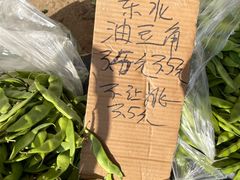 东北
油豆角
3.5元
不让挑
3.5元